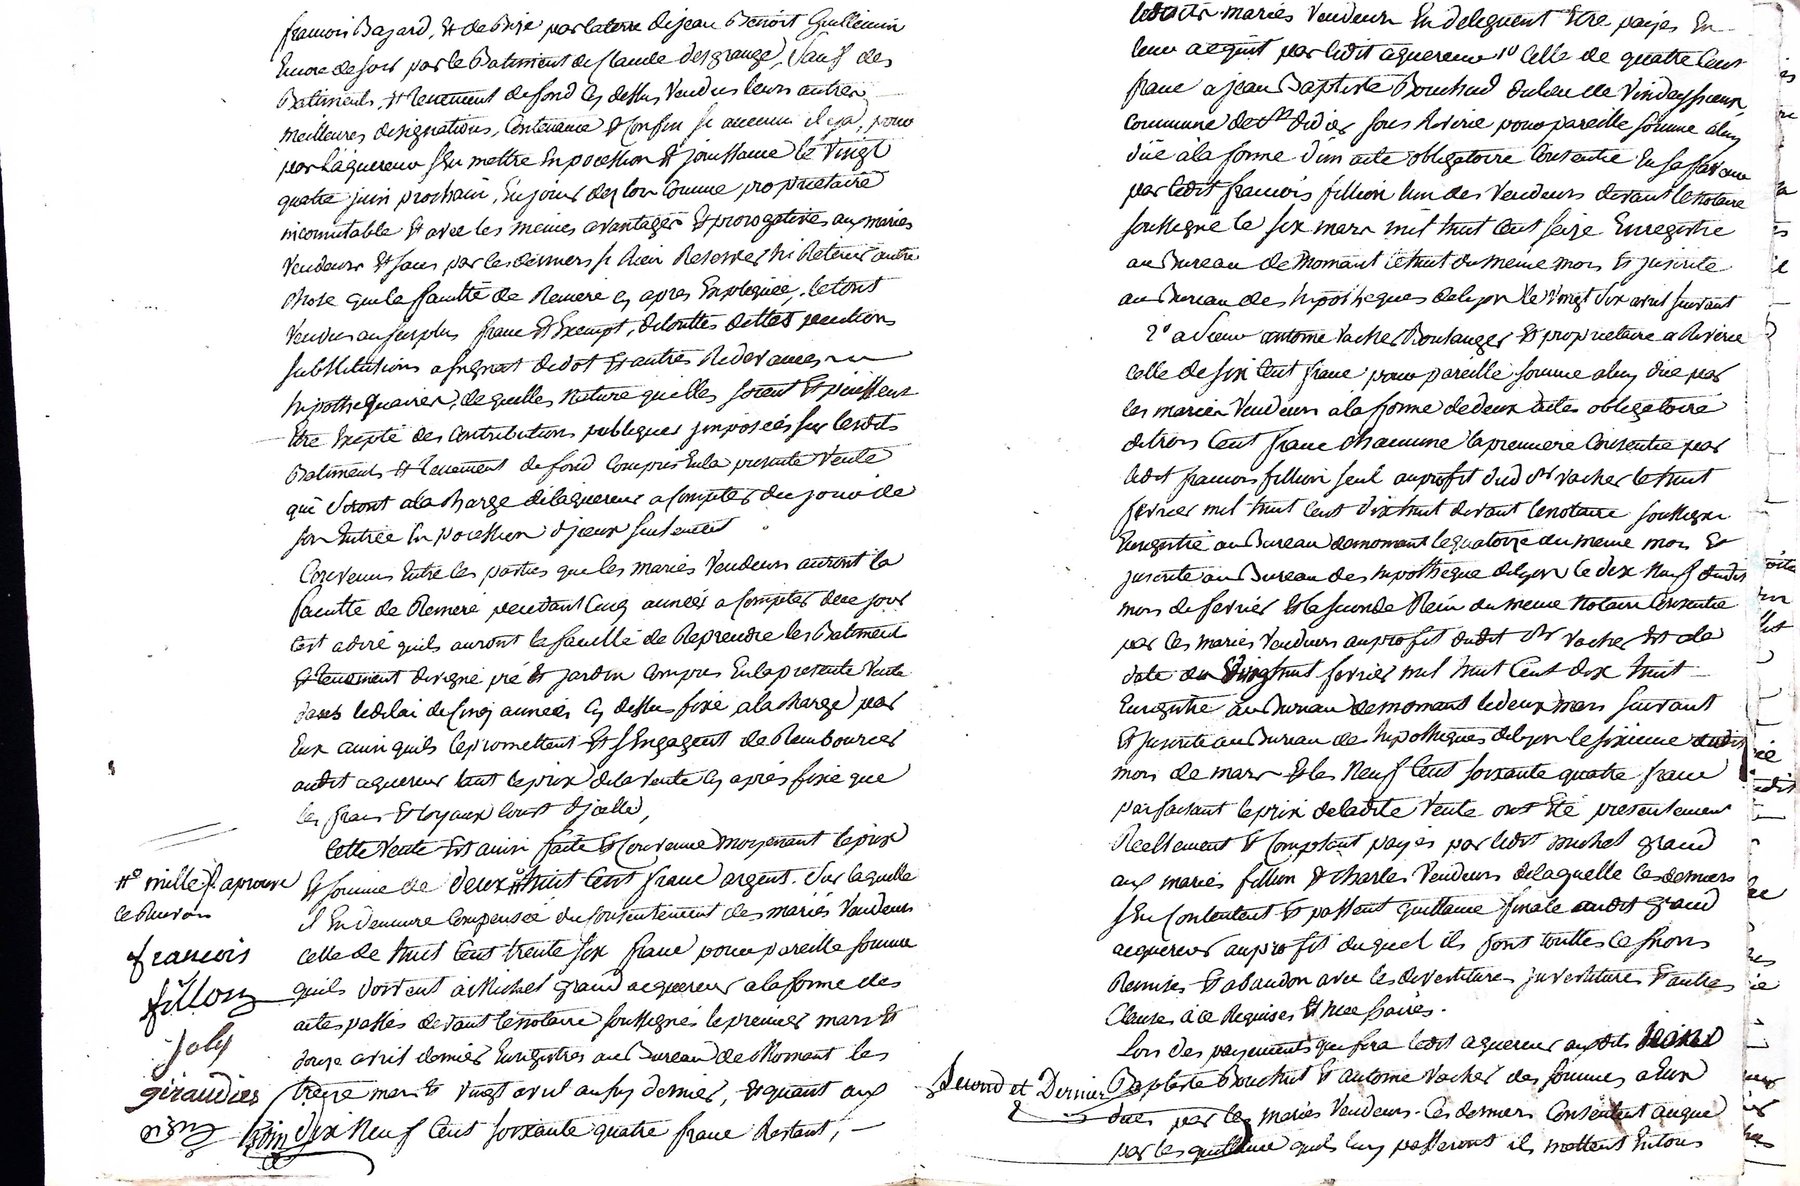 francois Bazard, et de Bize par la terre de jean Benoit Guillemin
Encore de soir par le Batiment de Claude desgrange, Sauf des
Batiments, et tenement de fond cy dessus Vendus leurs autres
meilleures designations, Contenance et Confin si aucun il y a, pour
par l'aquereur s'en mettre En pocession et jouissance le Vingt
quatre juin prochain, En jouir des lors Comme proprietaire
incomutable et avec les memes avantages et prerogatives aux maries
Vendeurs et sans par les derniers si Rien Reserver ni Retenir autre
chose que la faculté de Remere cy apres Expliquée, le tout
Vendus au surplus franc et Exempt, de touttes dettes pentions
substitutions asegnat de dot et autres Redevances
hypothequaires, de quelles Nature quelles soient et puissent
Etre Exepté des Contributions publiques jmposées sur lesdits
Batiments et tenement de fond Compris En la presente Vente
qui seront a la charge de laquereur a Compter du jour de
son Entrée En pocession d'jceux seulement
Convenus Entre les parties que les maries Vendeurs auront la
faculté de Remere pendant Cinq années a Compter de ce jour
C'est a dire quils auront la faculté de Reprendre les Batiment
et tenement de vigne pré et jardin Compris En la presente Vente
dans le delai de Cinq années Cy dessus fixé a la charge par
Eux ainsi quils le promettent et s'Engagent de Rembourcer
audit aquereur tant le prix de la Vente Cy après fixé que
les frais et loyaux Cout d'jcelle,
Cette Vente Est ainsi faite et Convenue moyenant le prix
et somme de deux # huit Cent franc argent. Sur laquelle
il En demeure Compensée du Consentement des mariés Vandeurs
celle de huit Cent trente six franc pour pareille somme
quils doivent à Michel grand aquereur a la forme des
actes passés devant le notaire soussigné le premier mars et
douze avril dernier Enregistres au Bureau de Mornant les
treize mars et Vingt avril aussy dernier, et quant aux
dix Neuf Cent soixante quatre franc Restant,
# mille f. aprouvé
le Renvoi
francois
fillon
joly
giraudier
lesdits maries Vendeurs En deleguent Etre payés En
leur acquit par ledit aquereur 1° Celle de quatre Cent
franc a jean Baptiste Bouchud du lieu de
commune de St didier sous Riverie pour pareille somme a luy
dûe a la forme d'un acte obligatoire Consentie En sa faveur
par ledit francois fillion l'un des Vendeurs devant le notaire
soussigné le six mars mil huit Cent seize Enregistré
au Bureau de Mornant le huit du meme mois et jnscrite
au Bureau des hypotheques de Lyon le Vingt six avril suivant
2° a sieur antoine Vacher Boulanger et proprietaire a Riverie
celle de six Cent franc pour pareille somme a luy dûe par
les mariés Vendeurs a la forme de deux actes obligatoire
de trois Cent franc chacunne la premiere Consentie par
ledit francois fillion seul au profit dud Sr vacher le huit
fevrier mil huit Cent dix huit devant le notaire soussigné
Enregistré au Bureau de mornant le quatorze du meme mois et
jnscrite au Bureau des hypotheque de Lyon le dix Neuf dudit
mois de fevrier et la seconde Recu du meme Notaire Consentie
par les mariés Vendeurs au profit dudit Sr Vacher Est a la
date du Vingt huit fevrier mil huit Cent dix huit
Enregistré au Bureau de mornant le deux mars suivant
Et jnscrite au Bureau des hypotheques de Lyon le sixieme dudit
mois de mars et les Neuf Cent soixante quatre franc
parfaisant le prix de ladite Vente ont Eté presentement
Reellement et Comptant payés par ledit michel grand
aux mariés fillion et charles Vendeurs de laquelle Ces derniers
s'En Contentent et passent quittance finale audit grand
aquereur au profit duquel ils font touttes Cessions
Remises et abandon avec les devestitures jnvestitures et autres
Clauses à ce Requises et Necessaires.
Lors des payements que fera ledit aquereur auxdits Jean
Baptiste Bouchut et antoine Vacher des sommes a Eux
dues par les mariés Vendeurs. Ces derniers Consentent a ce que
par les quittance quils luy passeront ils mettent En tous
Second et Dernier